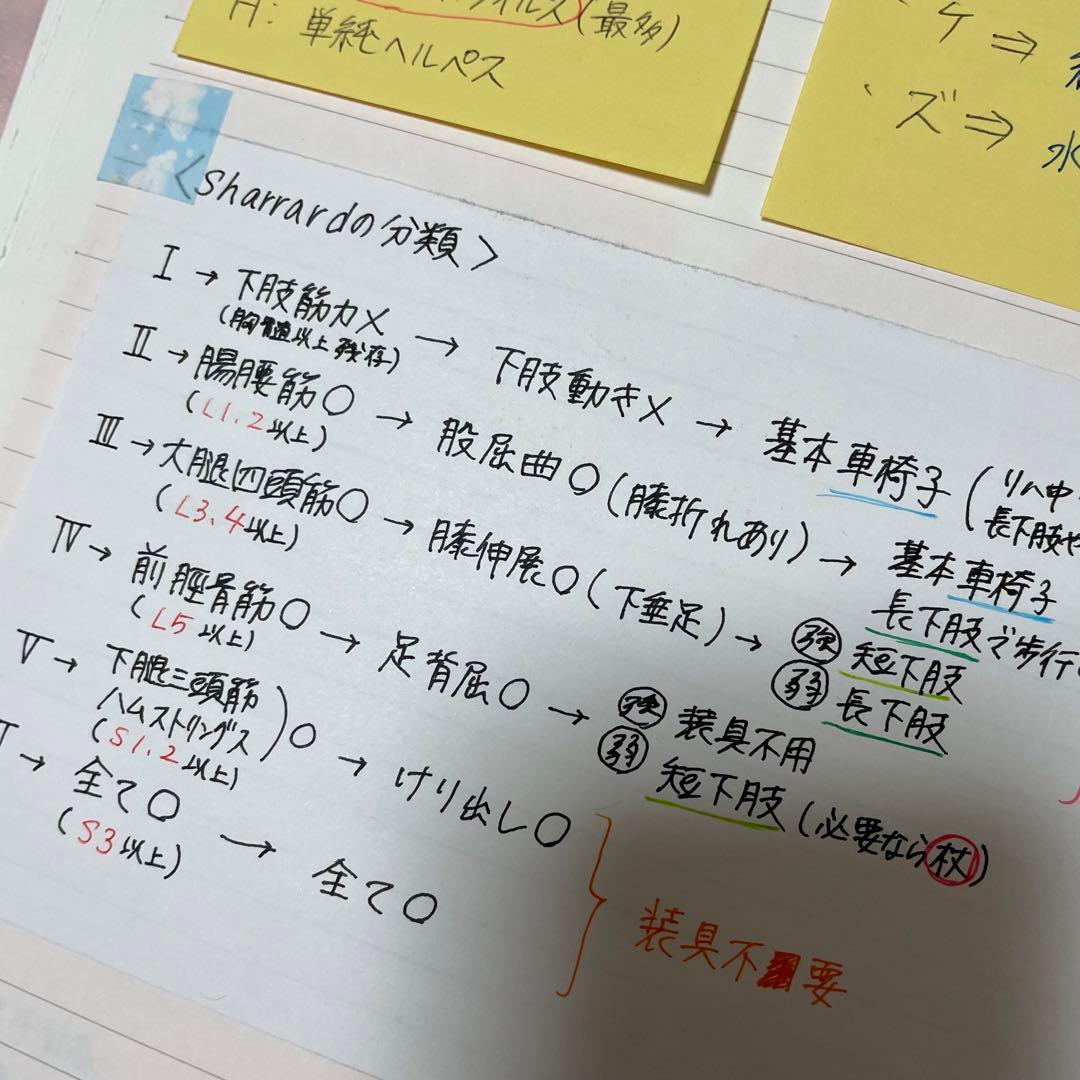 (最多)
H: 単純ヘルペス
ケ⇒
ズ⇒水
<Sharrardの分類>
I→下肢筋力×→下肢動き×→基本車椅子(リハ中
(胸髄以上残存) 長下肢や
II→腸腰筋○→股屈曲○(膝折れあり)→基本車椅子
(L1.2以上) 長下肢で歩行
III→大腿四頭筋○→膝伸展○(下垂足)→強 短下肢
(L3.4以上) 弱 長下肢
IV→前脛骨筋○→足背屈○→強 装具不用
(L5以上) 弱 短下肢(必要なら杖)
V→下腿三頭筋
ハムストリングス)○→けり出し○
(S1.2以上)
→全て○→全て○
(S3以上)
装具不要